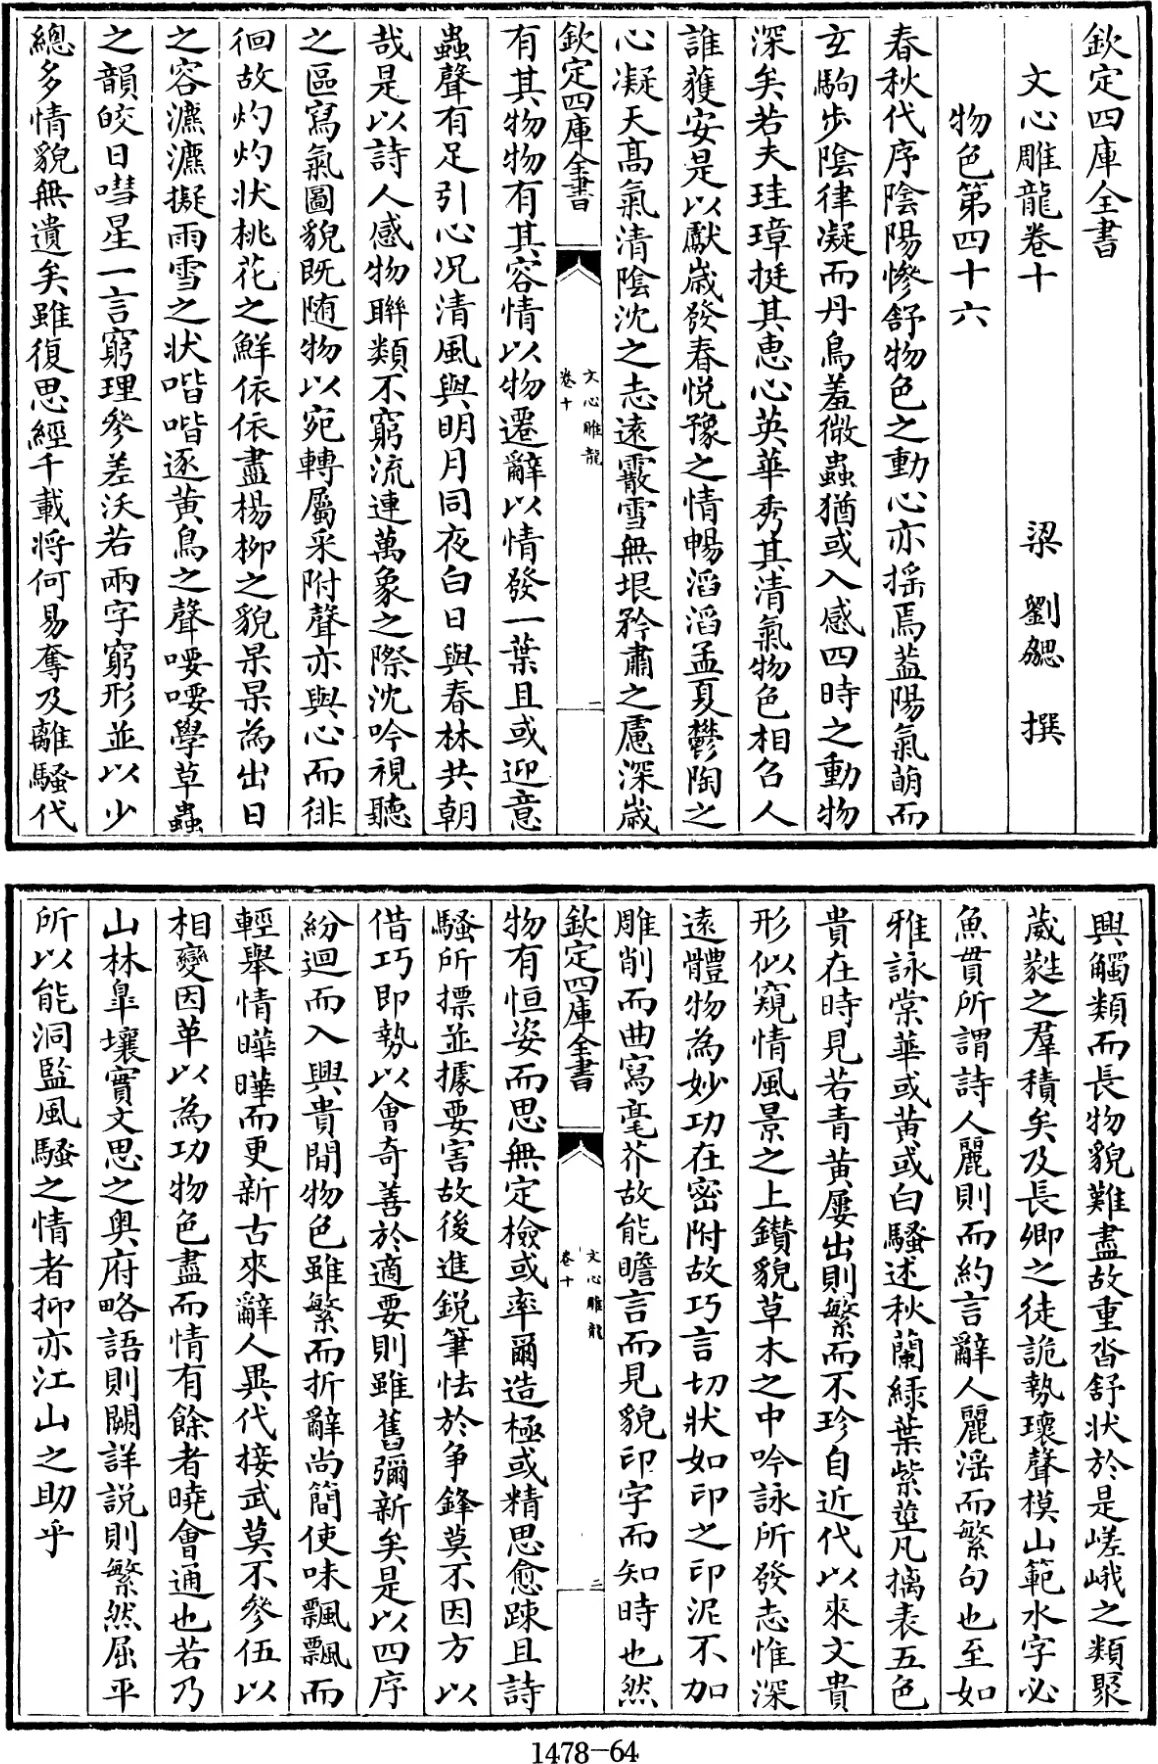 欽定四庫全書
文心雕龍卷十
梁 劉勰 撰
物色第四十六
春秋代序陰陽慘舒物色之動心亦揺焉葢陽氣萌而
玄駒步陰律凝而丹鳥羞微蟲猶或入感四時之動物
深矣若夫珪璋挺其惠心英華秀其清氣物色相召人
誰獲安是以獻歲發春悅豫之情暢滔滔孟夏鬱陶之
心凝天髙氣清陰沈之志遠霰雪無垠矜肅之慮深歲
欽定四庫全書
文心雕龍
卷十
二
有其物物有其容情以物遷辭以情發一葉且或迎意
蟲聲有足引心况清風與明月同夜白日與春林共朝
哉是以詩人感物聯類不窮流連萬象之際沈吟視聽
之區寫氣圖貌既随物以宛轉屬采附聲亦與心而徘
徊故灼灼狀桃花之鮮依依盡楊柳之貌杲杲為出日
之容瀌瀌擬雨雪之狀喈喈逐黄鳥之聲喓喓學草蟲
之韻皎日嘒星一言窮理參差沃若兩字窮形並以少
總多情貌無遺矣雖復思經千載將何易奪及離騷代
興觸類而長物貌難盡故重沓舒狀於是嵯峨之類聚
葳蕤之羣積矣及長卿之徒詭勢瓌聲模山範水字必
魚貫所謂詩人麗則而約言辭人麗淫而繁句也至如
雅詠棠華或黄或白騷述秋蘭緑葉紫莖凡摛表五色
貴在時見若青黄屢出則繁而不珍自近代以來文貴
形似窺情風景之上鑚貌草木之中吟詠所發志惟深
遠體物為妙功在密附故巧言切狀如印之印泥不加
雕削而曲寫毫芥故能瞻言而見貌印字而知時也然
欽定四庫全書
文心雕龍
卷十
三
物有恒姿而思無定檢或率爾造極或精思愈踈且詩
騷所摽並據要害故後進鋭筆怯於争鋒莫不因方以
借巧即勢以會奇善於適要則雖舊彌新矣是以四序
紛迴而入興貴閒物色雖繁而折辭尚簡使味飄飄而
輕舉情曄曄而更新古來辭人異代接武莫不參伍以
相變因革以為功物色盡而情有餘者曉會通也若乃
山林臯壤實文思之奥府略語則闕詳説則繁然屈平
所以能洞監風騷之情者抑亦江山之助乎
1478-64